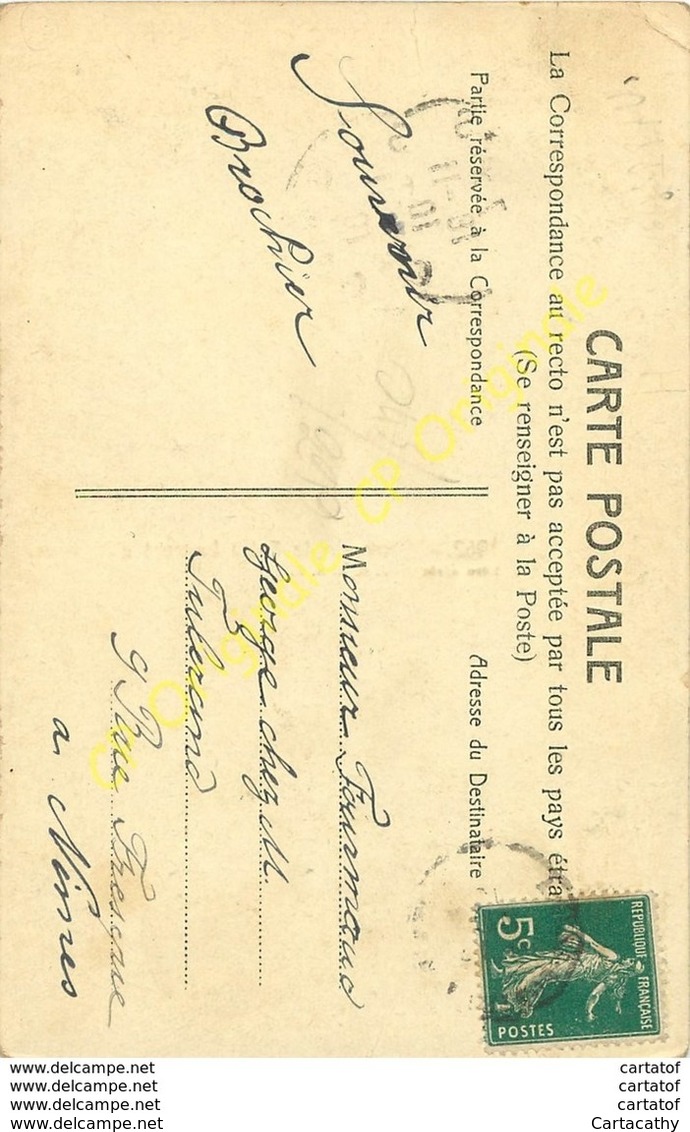 CARTE POSTALE
La Correspondance au recto n'est pas acceptée par tous les pays étra
(Se renseigner à la Poste)
Partie réservée à la Correspondance
Adresse du Destinataire
Souvenir
Brochier
Monsieur Fourmaud
George chez M.
9 Rue
a Nimes
REPUBLIQUE FRANÇAISE
5c
POSTES
CP Originale CP Originale
www.delcampe.net
www.delcampe.net
www.delcampe.net
www.delcampe.net
cartatof
cartatof
cartatof
Cartacathy